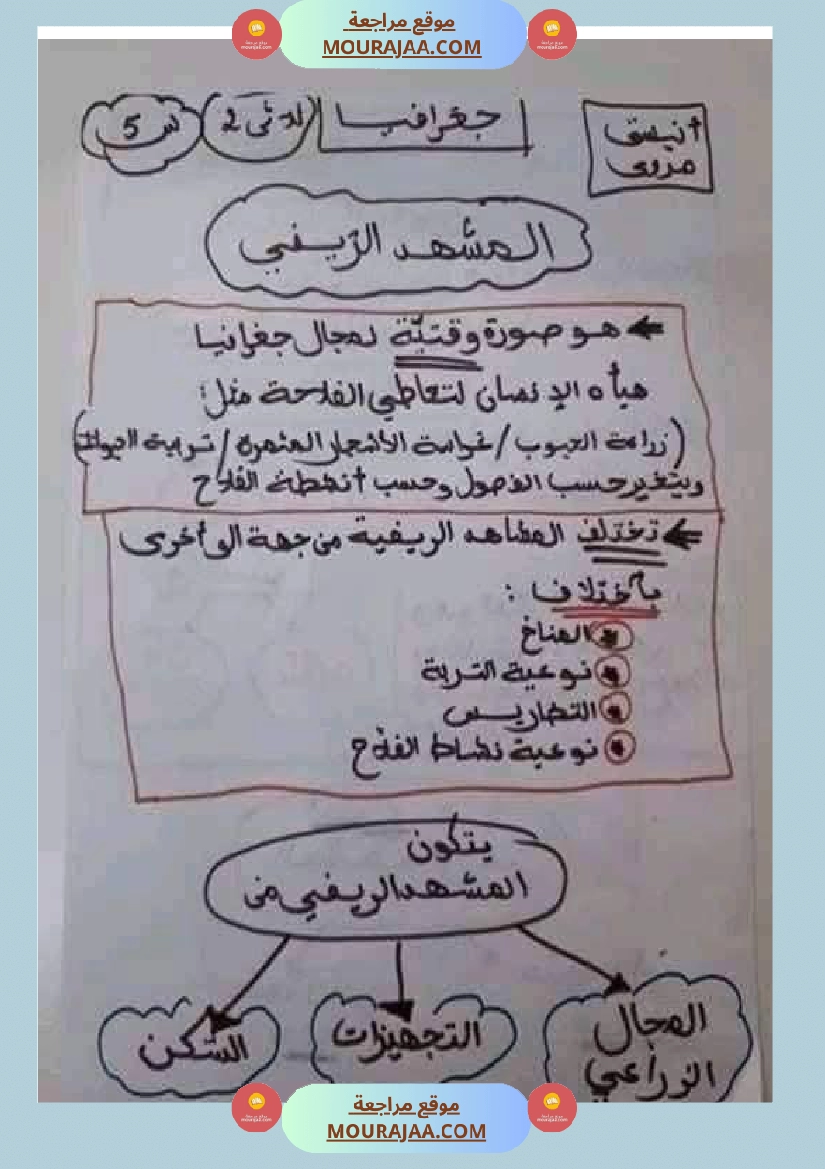 موقع مراجعة
MOURAJAA.COM
آنيستي
مروى
جغرافيا
ثلاثي 2
س 5
المشهد الريفي
هو صورة وقتيّة لمجال جغرافيا
هيأه الإنسان لتعاطي الفلاحة مثل:
(زراعة الحبوب / غراسة الأشجار المثمرة / تربية الحيوانات)
ويتغير حسب الفصول وحسب أنشطة الفلاح
تختلف المشاهد الريفية من جهة الى أخرى
بإختلاف :
المناخ
نوعية التربة
التضاريس
نوعية نشاط الفلاح
يتكون
المشهد الريفي من
المجال
الزراعي
التجهيزات
السّكن
موقع مراجعة
MOURAJAA.COM